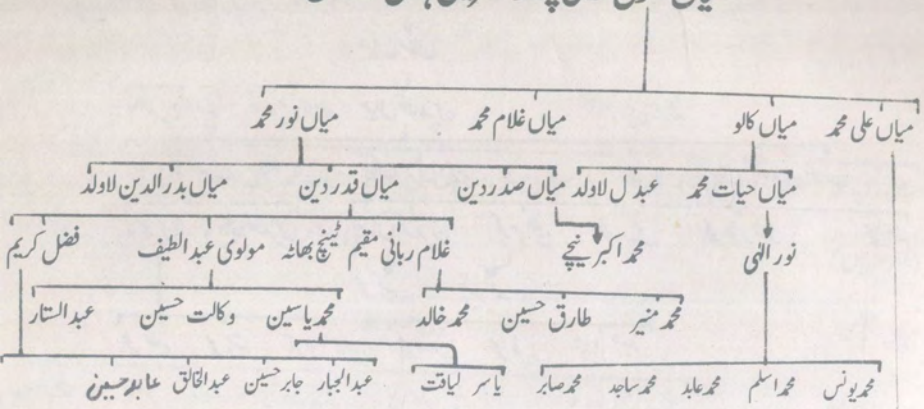 میاں علی محمد میاں کالو میاں غلام محمد میاں نور محمد
میاں حیات محمد عبدل لاولد میاں صدردین میاں قدردین میاں بدرالدین لاولد
نور الٰہی محمد اکبر نیچے غلام ربانی مقیم ٹینچ بھاٹہ مولوی عبدالطیف فضل کریم
محمد منیر طارق حسین محمد خالد محمد یاسین وکالت حسین عبدالستار
محمد یونس محمد اسلم محمد عابد محمد ساجد محمد صابر یاسر لیاقت عبدالجبار جابر حسین عبدالخالق عابد حسین